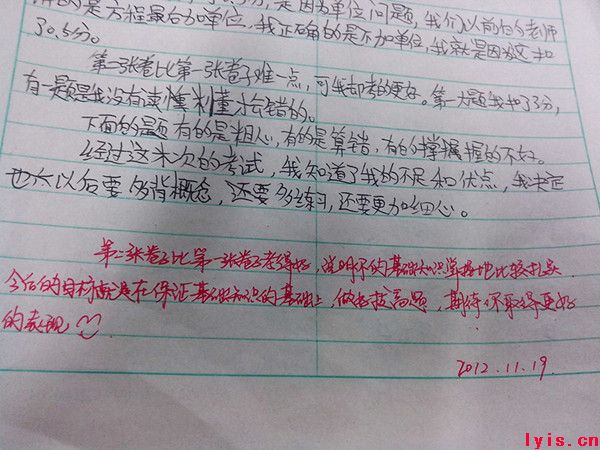 的是方程最后加单位，我正确的是不加单位，我就是因为这扣
30.5分。
第二张卷比第一张卷子难一点，可我却考的更好。第一大题我扣了3分，
有一题是我没有读懂判懂才会错的。
下面的题有的是粗心，有的是算错，有的掌握的不好。
经过这来次的考试，我知道了我的不足和优点，我决定
以后要多背概念，还要多练习，还要更加细心。
第二张卷子比第一张卷子考得好，说明你的基础知识掌握地比较扎实
今后的目标就是在保证基础知识的基础上，做好拔高题，期待你取得更好
的表现
2012.11.19
lyis.cn